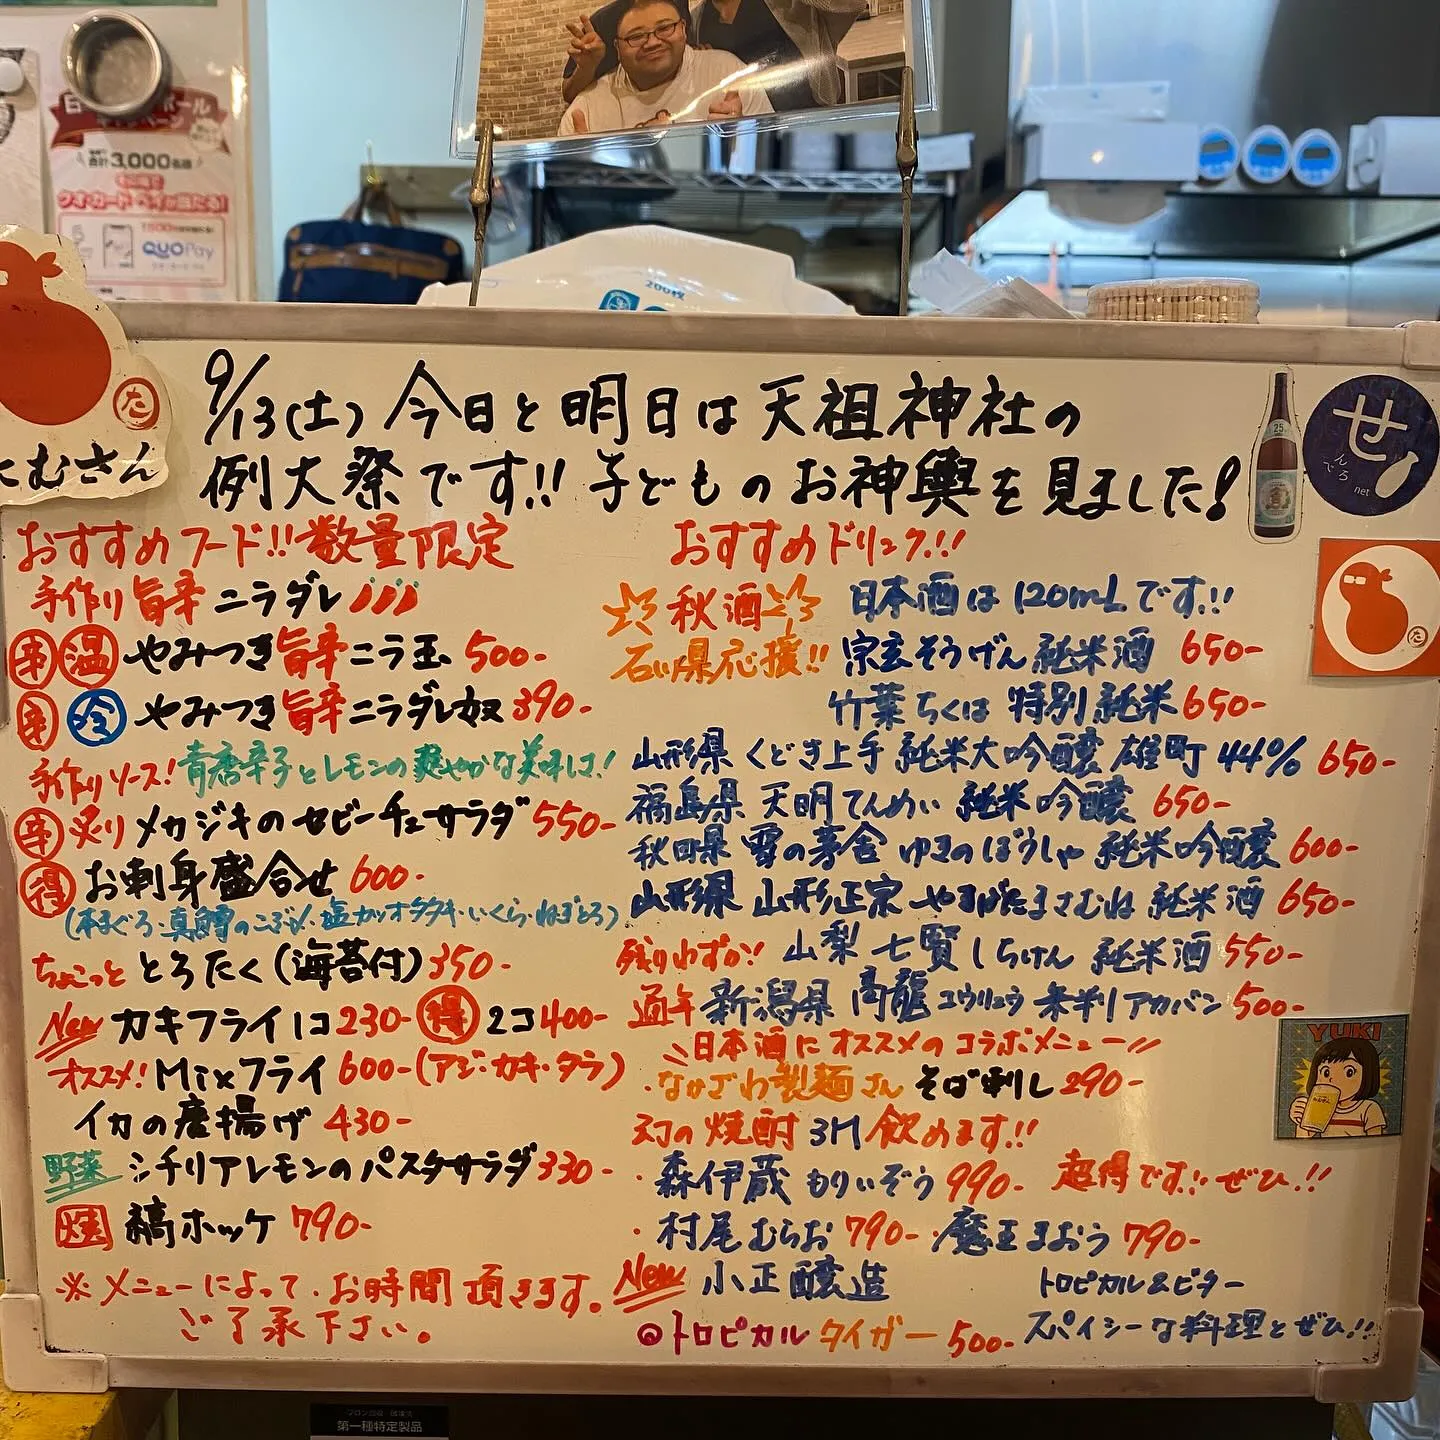 合計3,000名様
QUOPay
200枚
たむさん
た
せ
んでろ
net
25
9/13(土) 今日と明日は天祖神社の
例大祭です!! 子どものお神輿を見ました!
おすすめフード!!数量限定
手作り旨辛ニラダレ
辛 温 やみつき旨辛ニラ玉 500-
辛 冷 やみつき旨辛ニラダレ奴 390-
手作りソース!青唐辛子とレモンの爽やかな美味しさ!
辛 炙りメカジキのセビーチェサラダ 550-
得 お刺身盛合せ 600-
(本まぐろ・真鯛のこぶ〆・塩カツオタタキ・いくら・ねぎとろ)
ちょこっと とろたく(海苔付)350-
New カキフライ1コ230- 得 2コ400-
オススメ!Mixフライ 600-(アジ・カキ・タラ)
イカの唐揚げ 430-
野菜 シチリアレモンのパスタサラダ330-
焼 縞ホッケ 790-
※メニューによって、お時間頂きます。
ご了承下さい。
おすすめドリンク!!!
秋酒 日本酒は120mLです!!!
石川県応援!! 宗玄そうげん純米酒 650-
竹葉ちくは 特別純米 650-
山形県 くどき上手 純米大吟醸 雄町 44% 650-
福島県 天明てんめい 純米吟醸 650-
秋田県 雪の茅舎 ゆきのぼうしゃ 純米吟醸 600-
山形県 山形正宗 やまがたまさむね 純米酒 650-
残りわずか! 山梨 七賢 しちけん 純米酒 550-
通年 新潟県 高龍 コウリュウ 辛判 アカバン 500-
\\日本酒にオススメのコラボメニュー//
・なかざわ製麺さん そば刺し 290-
幻の焼酎3M飲めます!!!
・森伊蔵 もりいぞう 990- 超得です!!ぜひ!!
・村尾むらお 790- ・魔王まおう 790-
New 小正醸造 トロピカル&ビター
◎トロピカルタイガー 500- スパイシーな料理とぜひ!!
YUKI
第一種特定製品